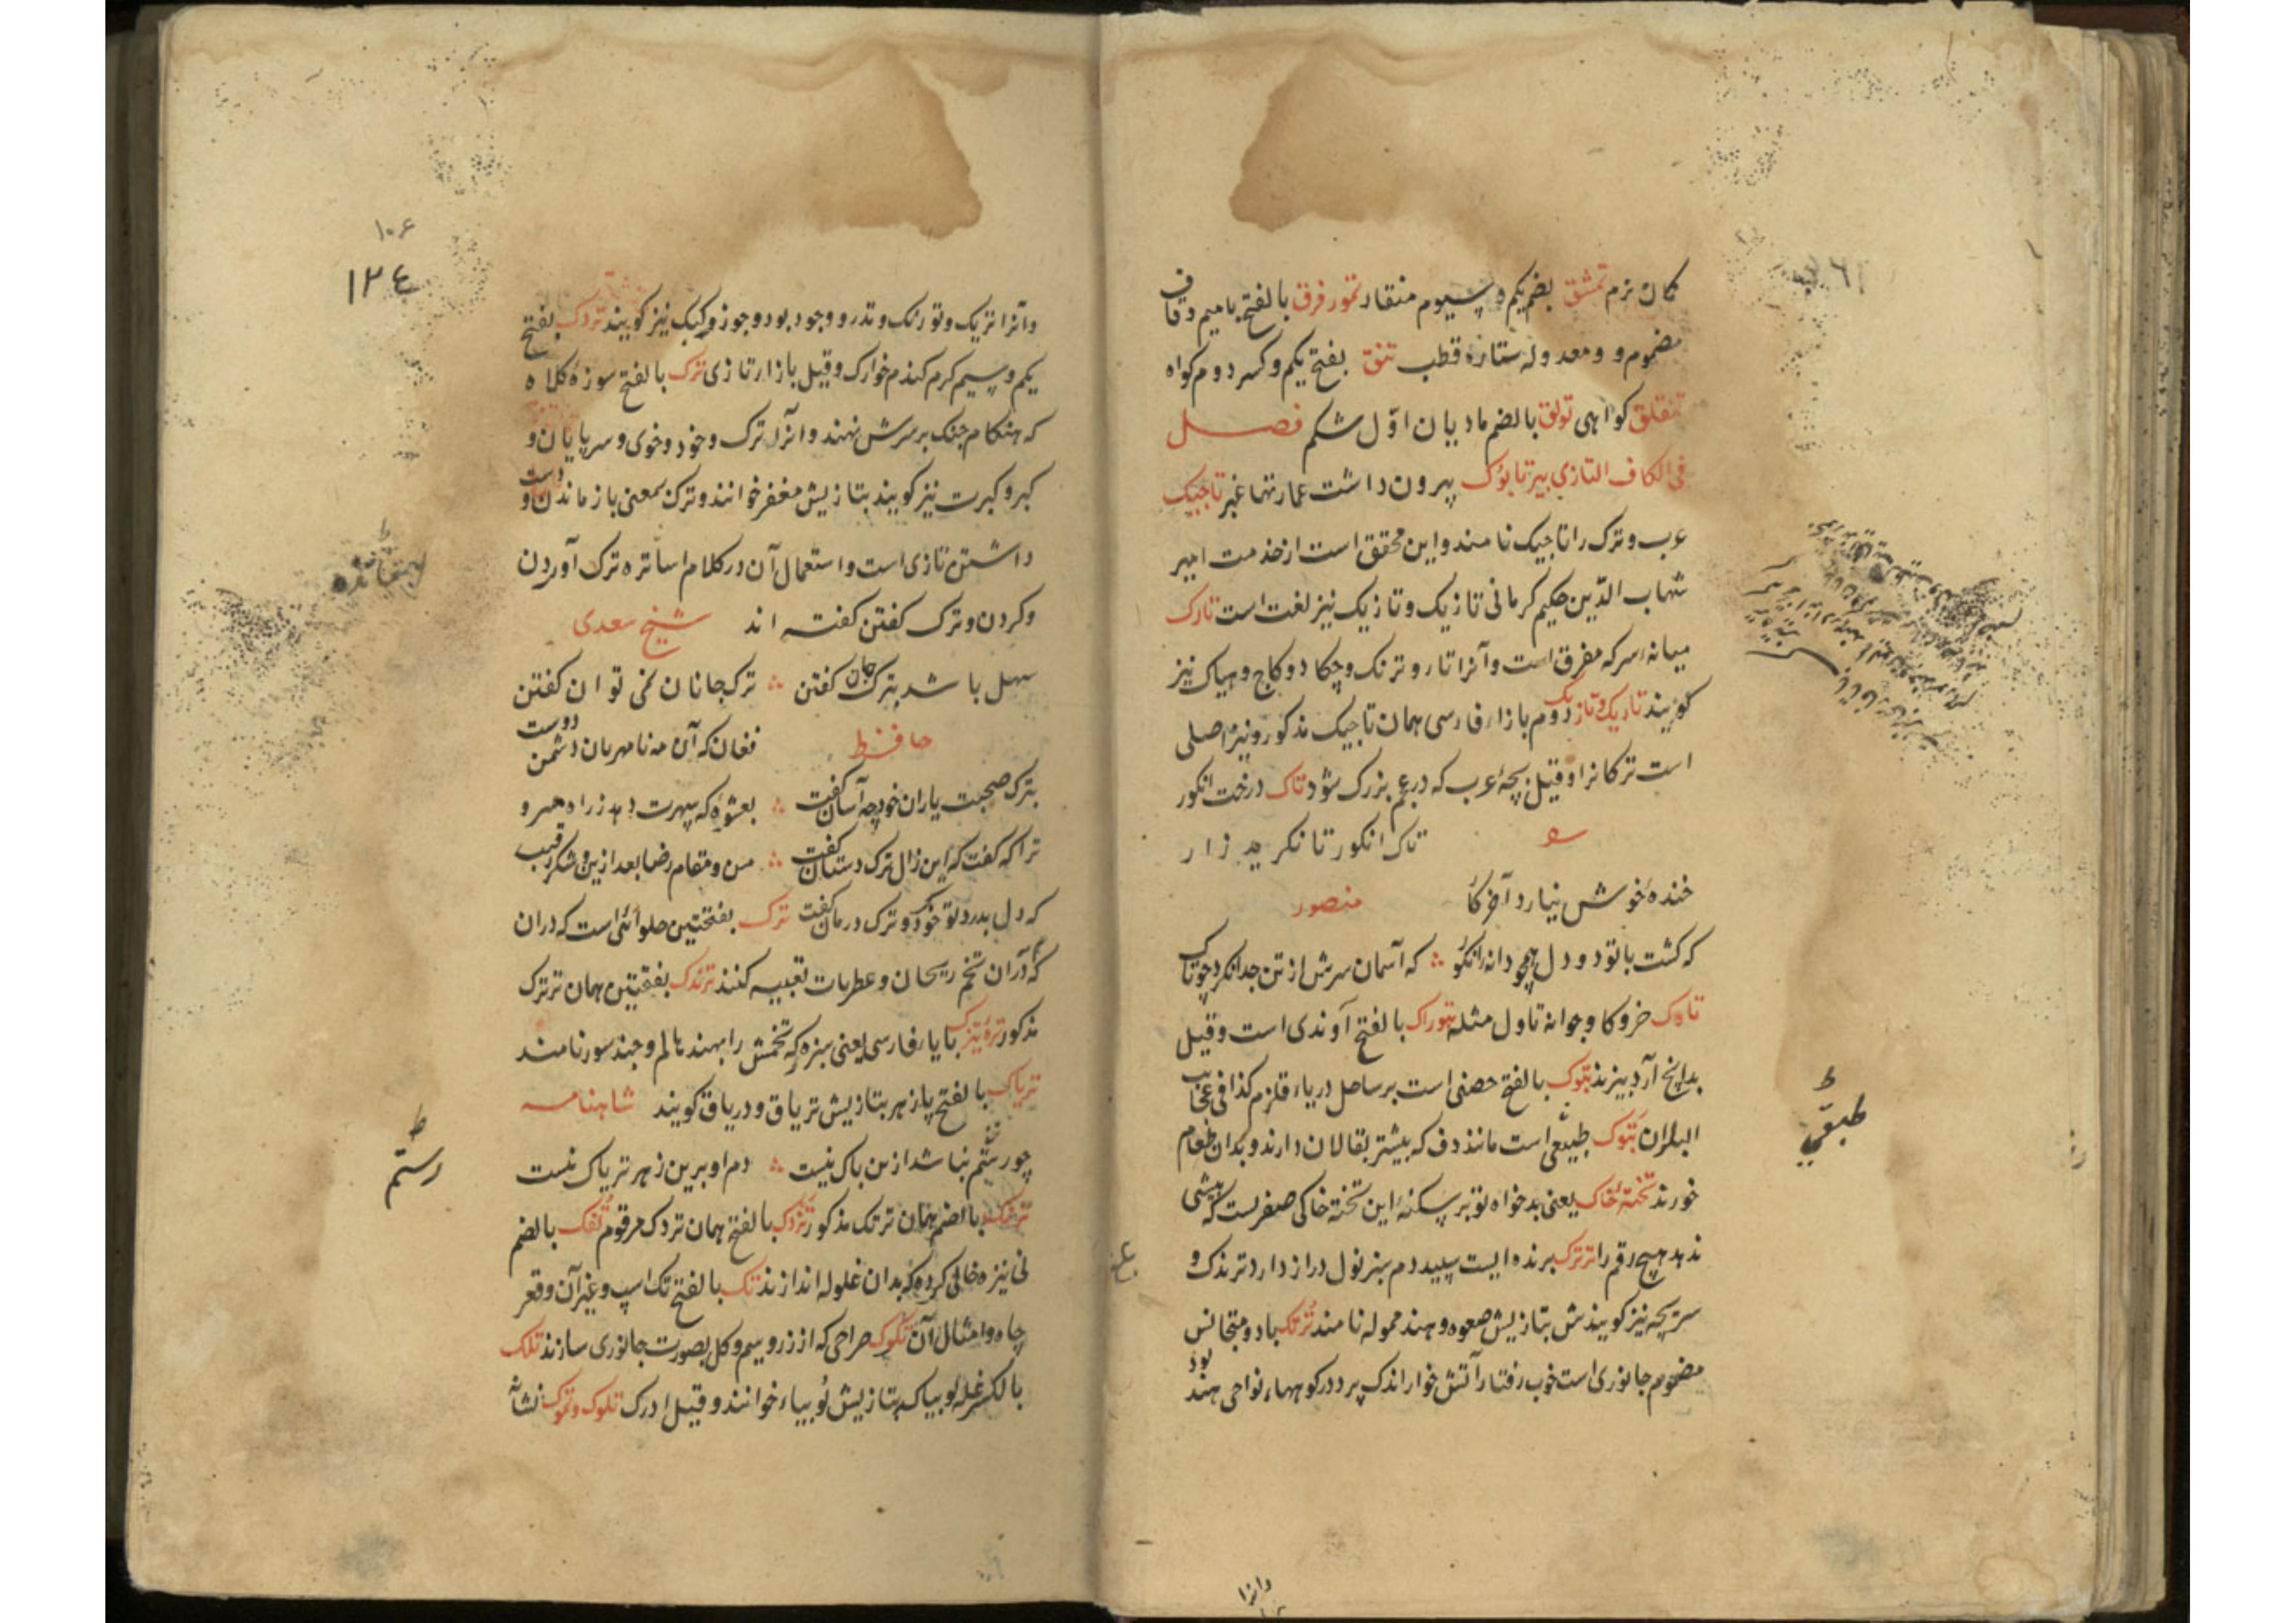 کمان نرم تمشق بضم یکم و سیوم منقاد تمور فرق بالفتح با میم و قاف
مضموم و و معدوله ستاره قطب تنق بفتح یکم و کسر دوم کواه
تنقلق کواهی تولق بالضم مادیان اول شکم فصل
فی الکاف التازی بیرتابوک بیرون داشت عمارتها غیر تاجیک
عرب و ترک را تاجیک نامند و این محقق است از خدمت امیر
شهاب الدین حکیم کرمانی تازیک و تازیک نیز لغت است تارک
میانه سر که مفرق است و آنرا تار و ترنک و چکاد و کاج و هباک نیز
کویند تاریک و تازیک دوم بازاء فارسی همان تاجیک مذکور و نیز اصلی
است ترکانرا و قیل بچهٔ عرب که در عجم بزرک شود تاک درخت انکور
تاک انکور تا نکرید زار
خندهٔ خوش نیارد آخر کار
منصور
که کشت با تو دو دل همچو دانه انکور ∴ که آسمان سرش از تن جدا نکرد چو تاک
تاوک خر و کاو جوانه تاول مثله تبوراک بالفتح آوندی است و قیل
بدانچ آرد بیزند تبوک بالفتح حصنی است بر ساحل دریاء قلزم کذا فی عجایب
البلدان تبوک طبقی است مانند دف که بیشتر بقالان دارند و بدان طعام
خورند تختهٔ خاک یعنی بدخواه تو بر سکنهٔ این تختهٔ خاکی صفریست که بیشی
ندهد هیچ رقم را ترترک پرنده ایست سپید دم سبز نول دراز دارد ترندک و
سریچه نیز کویندش بتازیش صعوه و هند ممولة نامند ترتک با دو متجانس
مضموم جانوری است خوب رفتار آتش خوار اندک پرد در کوهها نواحی هند بود
طبقی
وانرا
۱۰۶
۱۳۴
وآنرا تزیک و تورنک و تذرو و جود بود و جوز و کبک نیز کویند تردک بفتح
یکم و سیم کرم کندم خوارک و قیل بازاء تازی ترک بالفتح سوزهٔ کلاه
که هنکام جنک بر سرش نهند و آنرا ترک و خود و خوی و سرپایان و
کبر و کبرت نیز کویند بتازیش مغفر خوانند و ترک بمعنی باز ماندن و دست
داشتن تازی است و استعمال آن در کلام اساتره ترک آوردن
و کردن و ترک کفتن کفته اند شیخ سعدی
سهل باشد بترک جان کفتن ∴ ترک جانان نمی توان کفتن
حافظ فغان که آن مه نامهربان دشمن دوست
بترک صحبت یاران خود چه آسان کفت ∴ بعشوهٔ که سپهرت دهد ز راه مرو
ترا که کفت که این زال ترک دستان کفت ∴ من و مقام رضا بعد ازین و شکر رقیب
که دل بدرد تو خو کرد و ترک درمان کفت ترک بفتحتین حلوائی است که دران
که دران تخم ریحان و عطریات تعبیه کنند ترندک بفتحتین همان ترترک
مذکور ترهٔ تیزک با یاء فارسی یعنی سبزه که تخمش را بهند هالم و چندسور نامند
تریاک بالفتح پازهر بتازیش تریاق و دریاق کویند شاهنامه
چو رستم نباشد ازین باک نیست ∴ دم او برین زهر تریاک نیست
ترنک بالضم همان ترتک مذکور تزدک بالفتح همان تردک مرقوم تفک بالضم
نی نیزه خالی کرده که بدان غلوله اندازند تک بالفتح تک اسپ و غیر آن و قعر
چاه و امثال آن تکوک صراحی که از زر و سیم و کل بصورت جانوری سازند تلک
بالکسر غلهٔ لوبیا که بتازیش لوبیاء خوانند و قیل ادرک تلوک و تموک نشانه
رستم